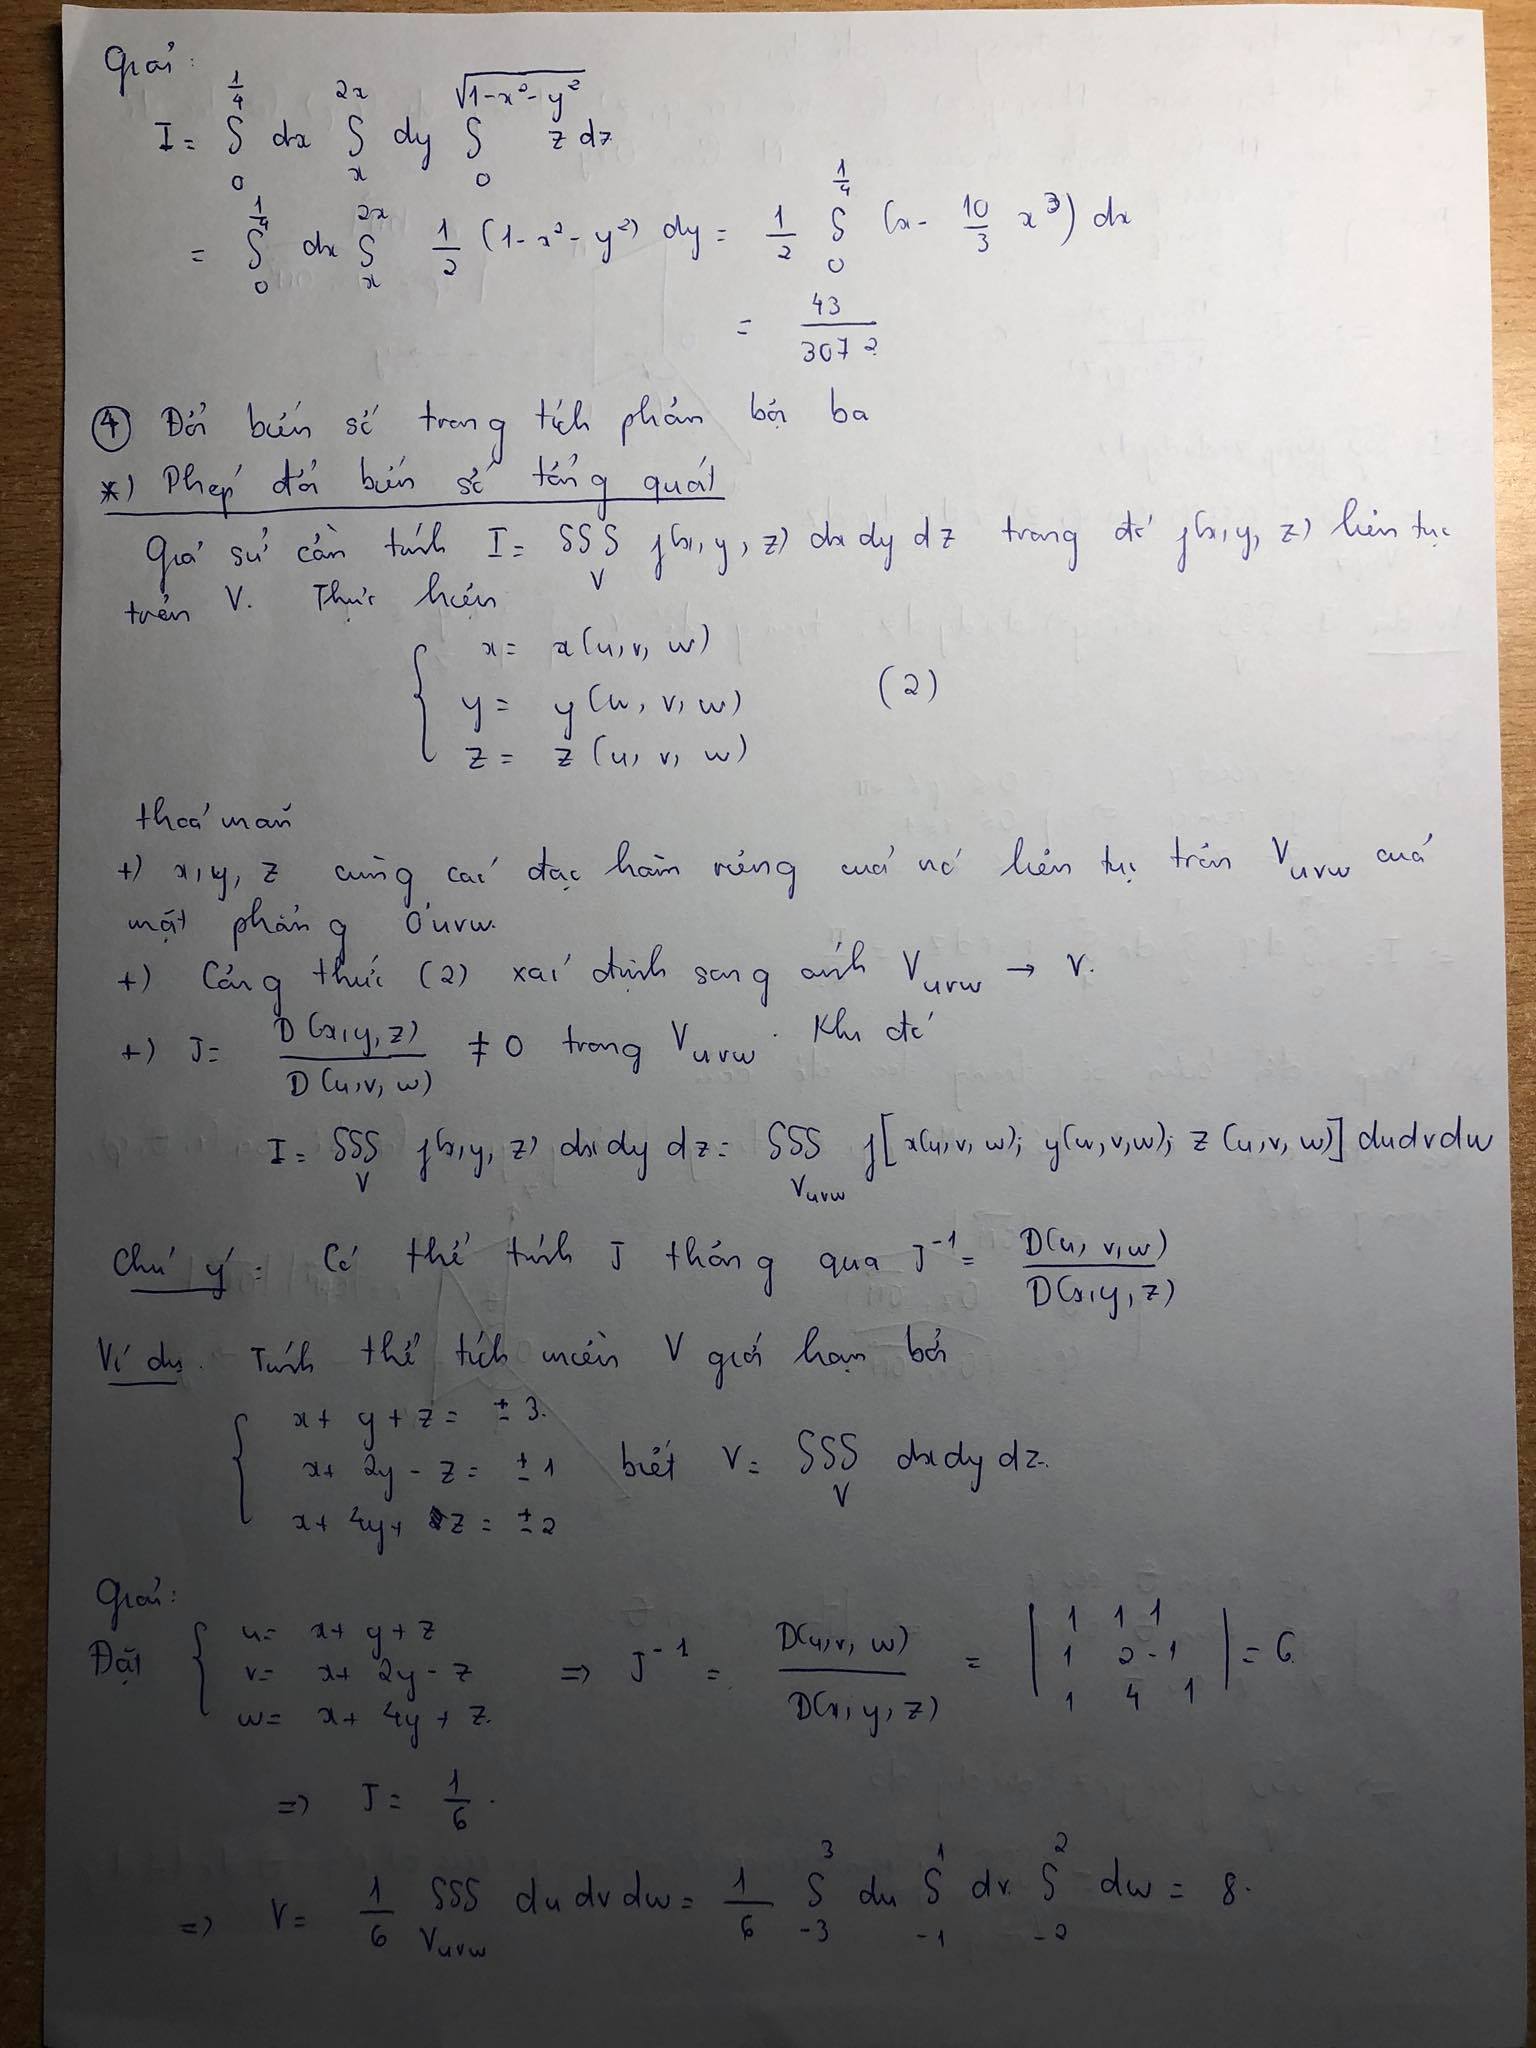 Giải:
I = ∫_0^{1/4} dx ∫_x^{2x} dy ∫_0^{√(1-x²-y²)} z dz
= ∫_0^{1/4} dx ∫_x^{2x} 1/2 (1-x²-y²) dy = 1/2 ∫_0^{1/4} (x - 10/3 x³) dx
= 43/3072
④ Đổi biến số trong tích phân bội ba
*) Phép đổi biến số tổng quát
Giả sử cần tính I = ∫∫∫_V f(x, y, z) dx dy dz trong đó f(x, y, z) liên tục
trên V. Thực hiện
{ x = x(u, v, w)
y = y(u, v, w) (2)
z = z(u, v, w)
thoả mãn
+) x, y, z cùng các đạo hàm riêng của nó liên tục trên V_{uvw} của
mặt phẳng O'uvw.
+) Công thức (2) xác định song ánh V_{uvw} → V.
+) J = D(x,y,z)/D(u,v,w) ≠ 0 trong V_{uvw}. Khi đó
I = ∫∫∫_V f(x, y, z) dx dy dz = ∫∫∫_{V_{uvw}} f[x(u, v, w); y(u,v,w); z(u, v, w)] du dv dw
Chú ý: Có thể tính J thông qua J^{-1} = D(u, v, w)/D(x, y, z)
Ví dụ. Tính thể tích miền V giới hạn bởi
{ x + y + z = ± 3.
x + 2y - z = ± 1 biết V = ∫∫∫_V dx dy dz.
x + 4y + z = ± 2
Giải:
Đặt { u = x + y + z
v = x + 2y - z ⇒ J^{-1} = D(u,v,w)/D(x,y,z) = |1 1 1; 1 2 -1; 1 4 1| = 6.
w = x + 4y + z.
⇒ J = 1/6.
⇒ V = 1/6 ∫∫∫_{V_{uvw}} du dv dw = 1/6 ∫_{-3}^3 du ∫_{-1}^1 dv. ∫_{-2}^2 dw = 8.